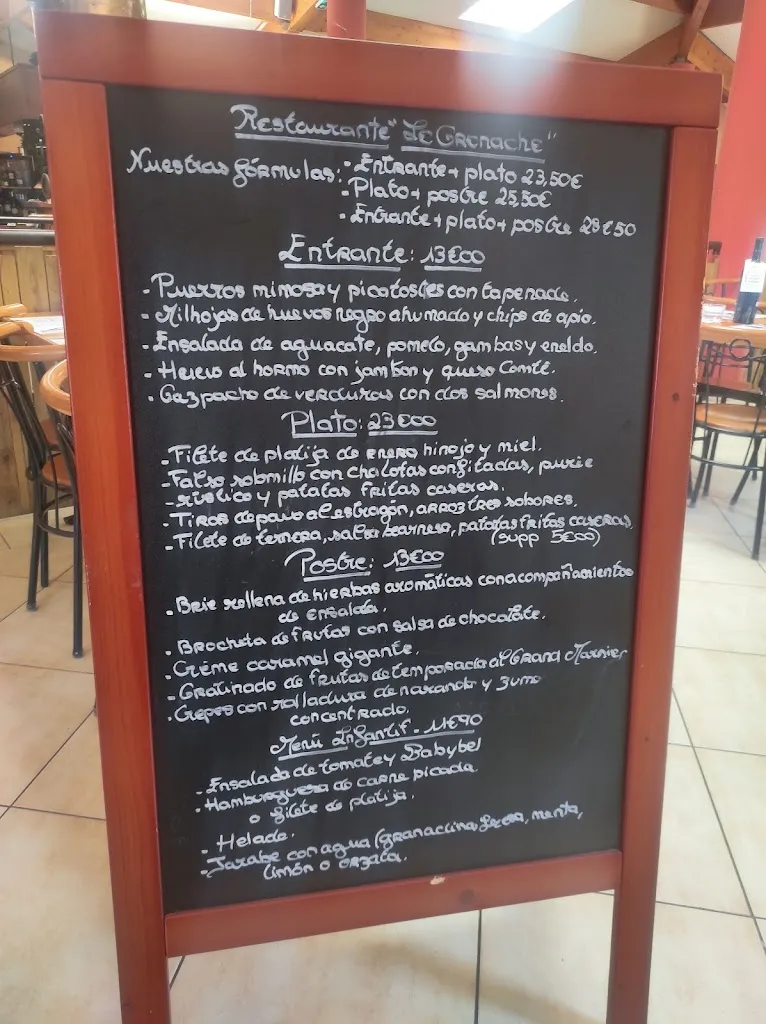 Restaurante "Le Grenache"
Nuestras fórmulas: - Entrante + plato 23,50€
- Plato + postre 25,50€
- Entrante + plato + postre 28€50
Entrante: 13€00
- Puerros mimosa y picatostes con tapenade.
- Milhojas de huevos negro ahumado y chips de apio.
- Ensalada de aguacate, pomelo, gambas y eneldo.
- Huevo al horno con jambon y queso Comté.
- Gazpacho de verduras con dos salmones.
Plato: 23€00
- Filete de platija de enero hinojo y miel.
- Falso sobmillo con chalotas confitadas, purée
- rústico y patatas fritas caseras.
- Tiras de pavo al estragón, arroz tres sabores.
- Filete de ternera, salsa bearnesa, patatas fritas caseras.
(supp 5€00)
Postre: 13€00
- Brie rellena de hierbas aromáticas con acompañamientos
de ensalada.
- Brocheta de frutas con salsa de chocolate.
- Crème caramel gigante.
- Gratinado de frutas de temporada al Grand Marnier
- Crepes con ralladura de naranda y zumo
concentrado.
Menú Infantif - 11€90
- Ensalada de tomate y Babybel
- Hamburguesa de carne picada
o filete de platija.
- Helado.
- Jarabe con agua (granadina, fresa, menta,
limón o orzata.